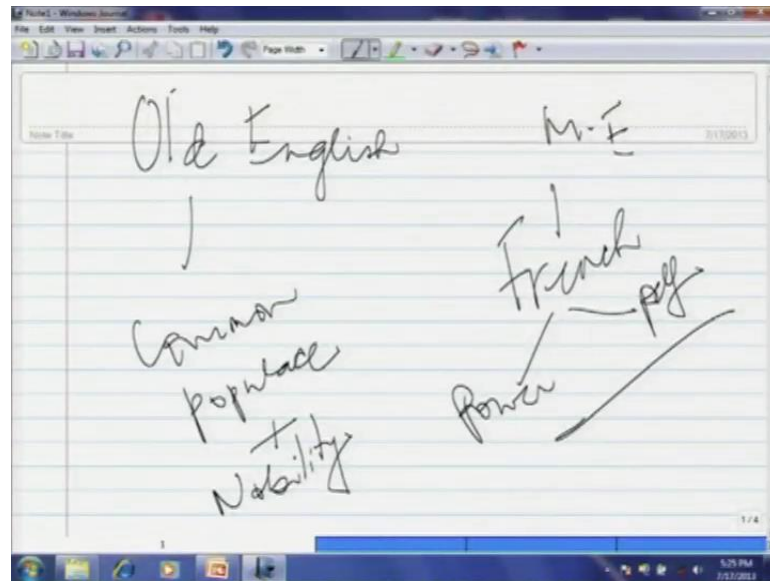 Note1 - Windows Journal
File Edit View Insert Actions Tools Help
Page Width
Note Title
7/17/2013
Old English
Common
populace
+
Nobility
M.E
French
Power
1/4
1
5:25 PM
7/17/2013